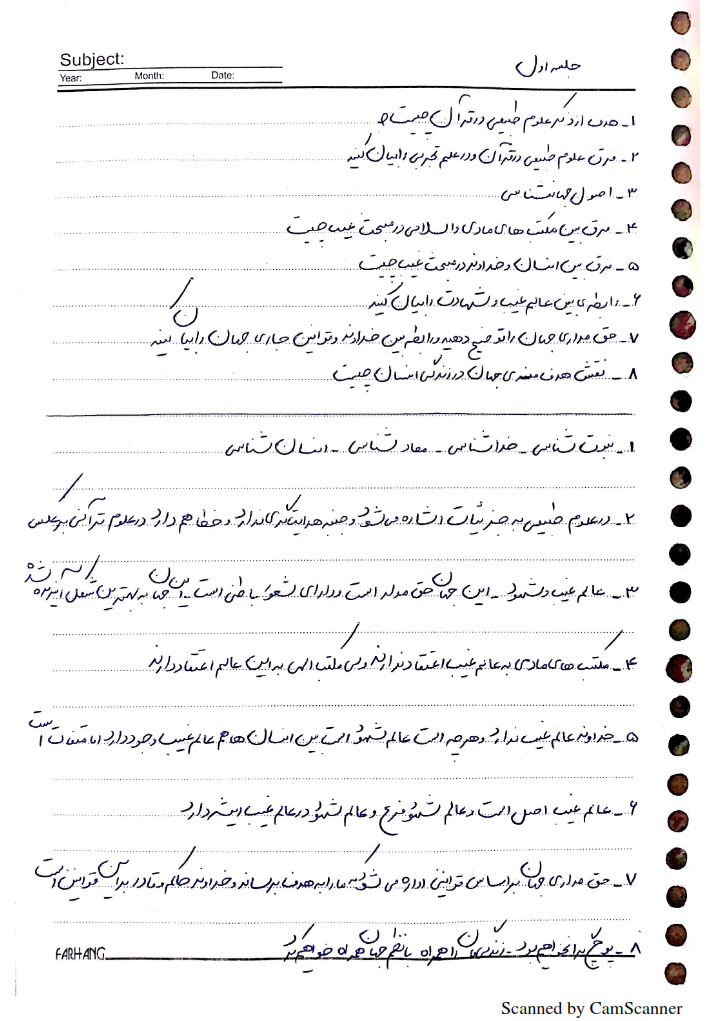 Subject:
Year: Month: Date:
جلسه اول
۱- هدف از ذکر علوم طبیعی در قرآن چیست؟
۲- فرق علوم طبیعی در قرآن و در علم تجربی را بیان کنید
۳- اصول جهانشناسی
۴- فرق بین مکتب های مادی و اسلامی در مبحث غیب چیست
۵- فرق بین انسان و خداوند در مبحث غیب چیست
۶- رابطه ی بین عالم غیب و شهادت را بیان کنید
۷- حق مداری جهان را توضیح دهید و رابطه بین خداوند و قوانین جاری جهان را بیان کنید
۸- نقش هدف مندی جهان در زندگی انسان چیست
۱- نبوت شناسی - خداشناسی - معاد شناسی - انسان شناسی
۲- در علوم طبیعی به جزئیات اشاره می شود و جنبه هدایتگری ندارد و خطا هم دارد در علوم قرآنی برعکس
۳- عالم غیب و شهود - این جهان حق مدار است و دارای شعور باطنی است - این جهان به بهترین شکل آفریده شده
۴- مکتب های مادی به عالم غیب اعتقاد ندارند ولی مکتب الهی به این عالم اعتقاد دارند
۵- خداوند عالم غیب ندارد و هرچه است عالم شهود است بین انسان ها هم عالم غیب وجود دارد اما متفاوت است
۶- عالم غیب اصل است و عالم شهود فرع و عالم شهود در عالم غیب ریشه دارد
۷- حق مداری جهان براساس قوانینی اداره می شود که ما را به هدف برساند و خداوند حاکم و قادر بر این قوانین است
۸- پوچگرا نخواهیم بود - زندگی مان را همراه با نظم جهان همراه خواهیم کرد
FARHANG
Scanned by CamScanner